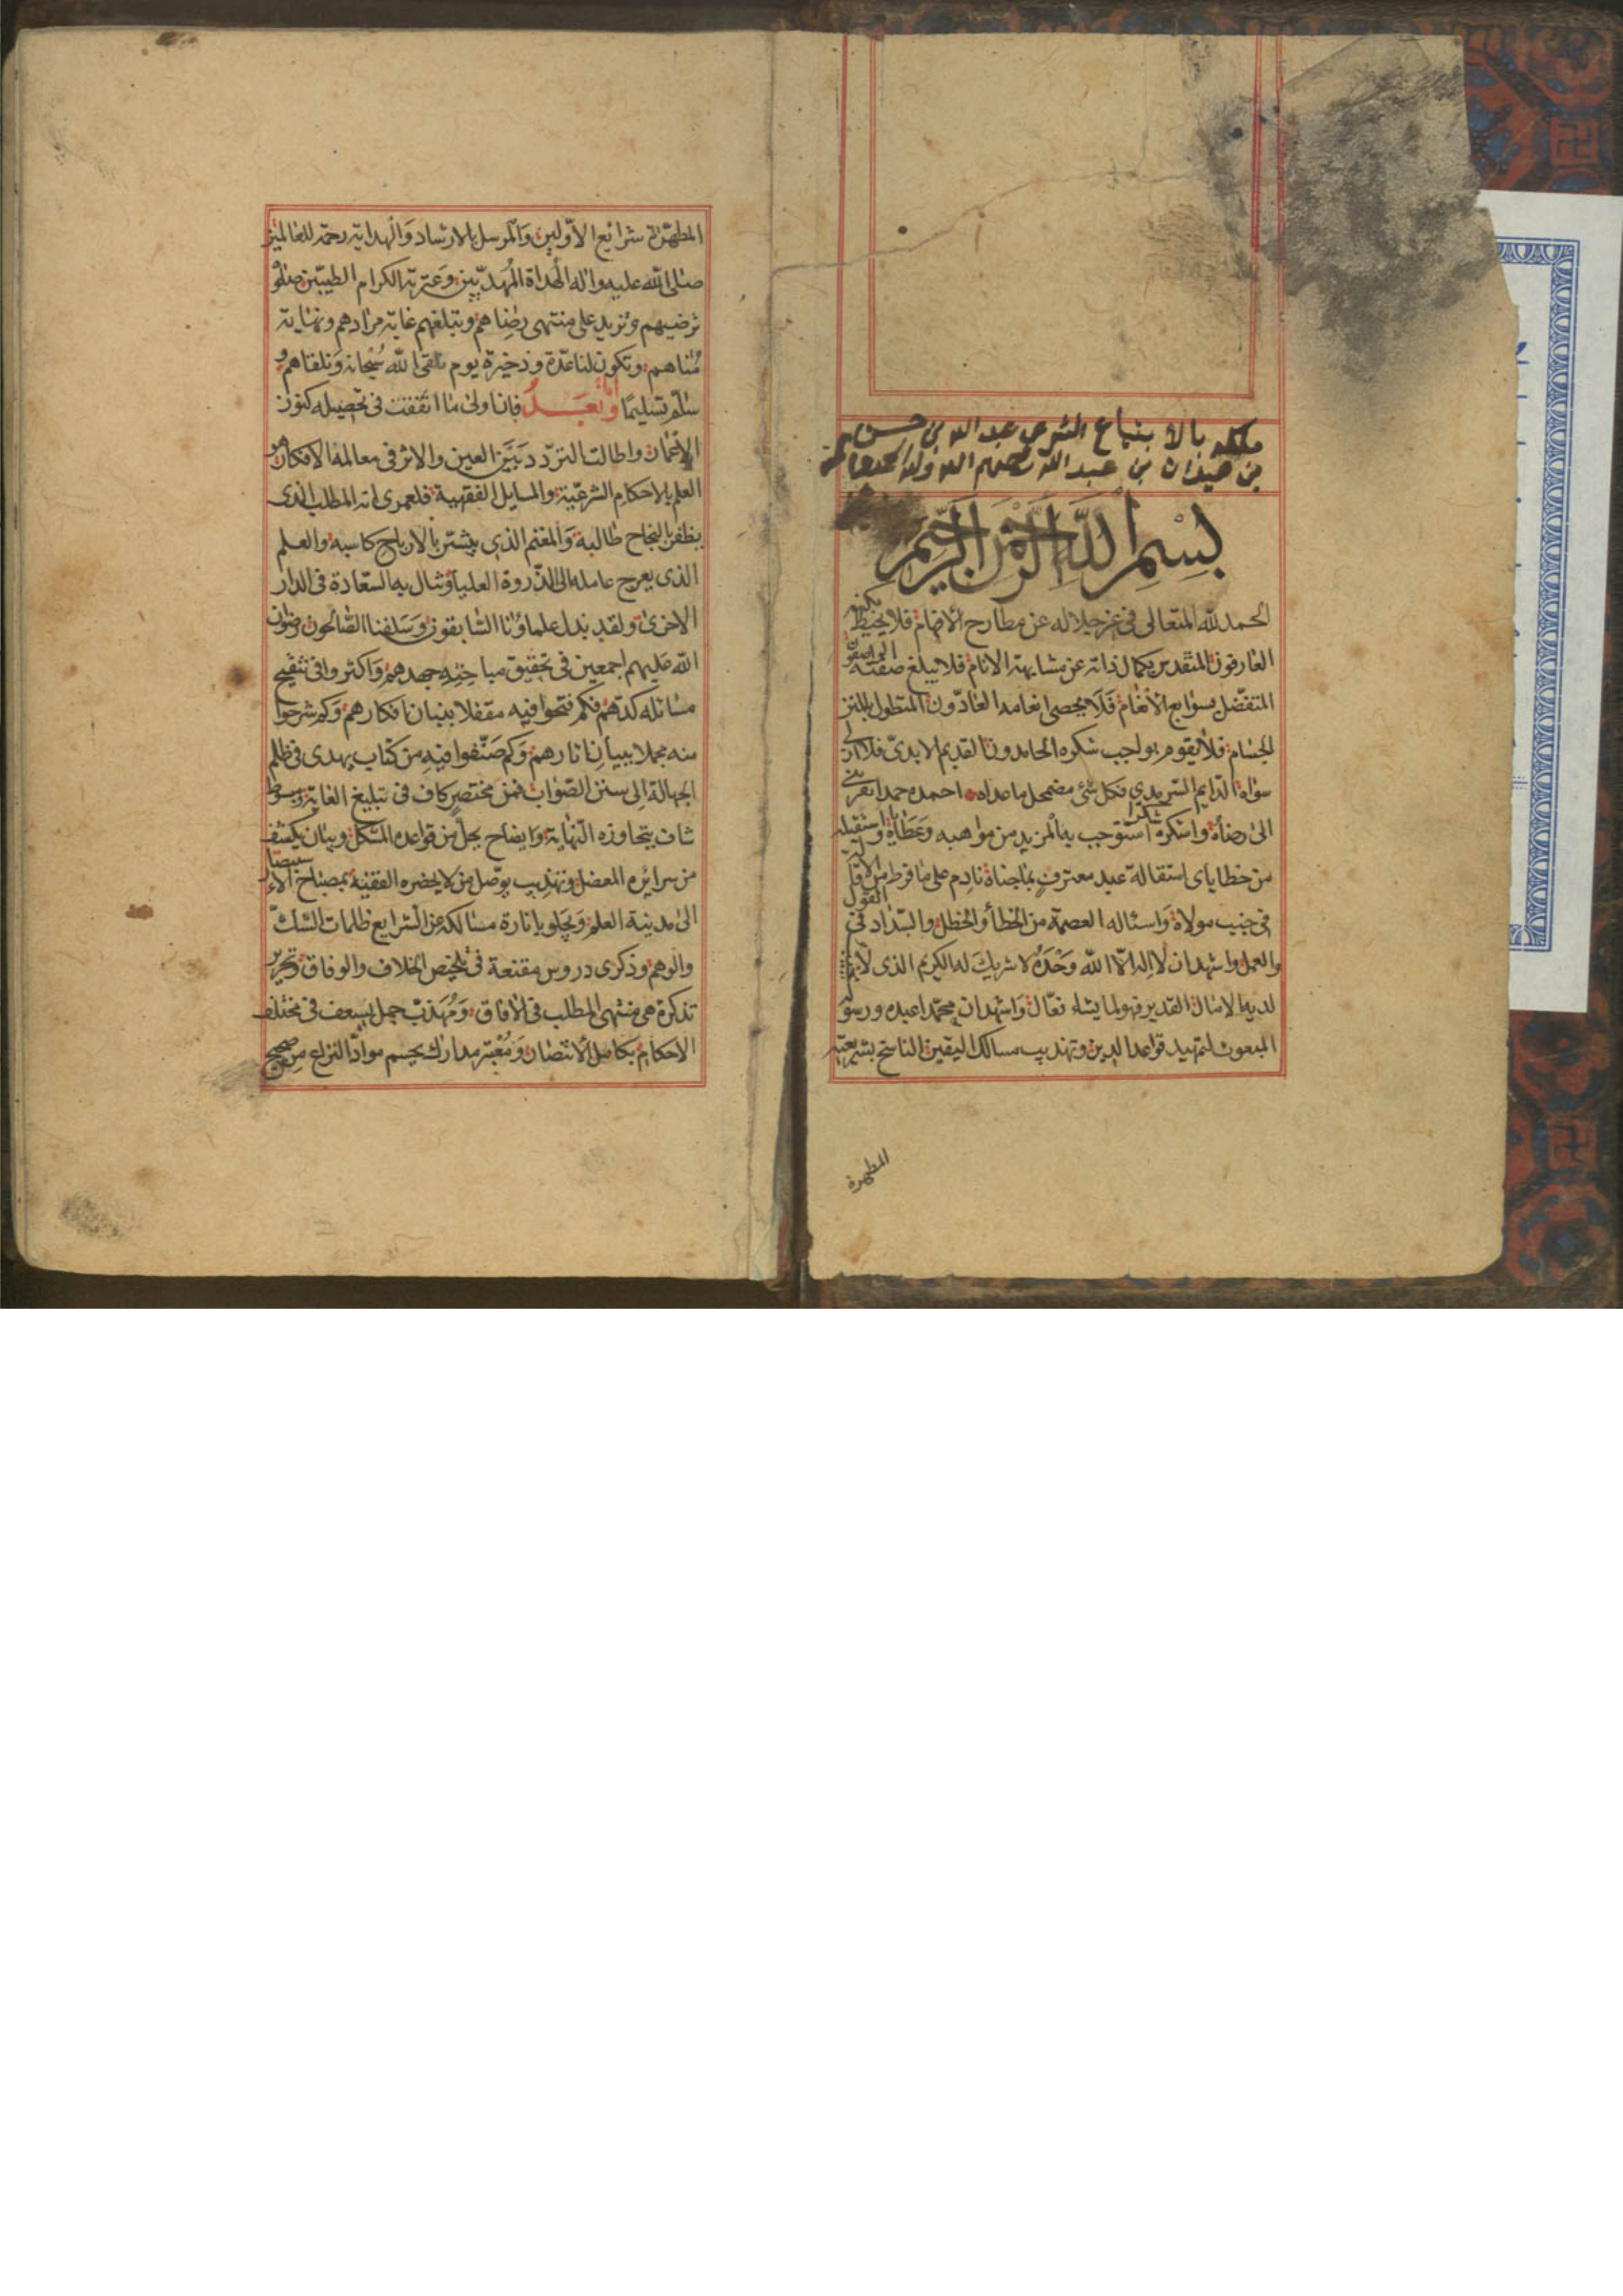 ملكه بالابتياع الشرعي عبد الله بن حسن
بن عبد الله
بسم الله الرحمن الرحيم
الحمد لله المتعالى فى عز جلاله عن مطارح الافهام فلا يحيط بكنهه
العارفون المتقدس بكمال ذاته عن مشابهة الانام فلا يبلغ صفته الواصفون
المتفضل بسوابغ الانعام فلا يحصى انعامه العادّون المتطول بالمنن
الجسام فلا يقوم بواجب شكره الحامدون القديم الابدىّ فلا ازلى
سواه الدايم السرمدي فكل شئ مضمحل ما عداه احمده حمدا يقربنى
الى رضاه واشكره شكرا استوجب به المزيد من مواهبه وعطاياه واستقيله
من خطاياى استقالة عبد معترف بما جناه نادم على ما فرط
فى جنب مولاه واسئاله العصمة من الخطأ والخطل والسّداد فى القول
والعمل واشهد ان لا اله الا الله وحده لا شريك له الكريم الذى لا يخيب
لديه الامال القدير فهو لما يشاء فعّال واشهد ان محمّدا عبده ورسوله
المبعوث لتمهيد قواعد الدين وتهذيب مسالك اليقين الناسخ بشريعته
المطهرة
المطهّرة شرائع الاوّلين والمرسل بالارشاد والهداية رحمة للعالمين
صلى الله عليه واله الهداة المهديّين وعترته الكرام الطيبّين صلوة
ترضيهم وتزيد على منتهى رضاهم وتبلغهم غاية مرادهم ونهاية
مُناهم وتكون لنا عدّة وذخيرة يوم نلقى الله سُبحانه ونلقاهم و
سلّم تسليمًا وبَعــد فان اولى ما انفقت فى تحصيله كنوز
الاعمار واطالت التردّد بَيَن العين والاثر فى معالمه الافكار هو
العلم بالاحكام الشرعيّة والمسايل الفقهية فلعمرى انه المطلب الذى
يظفر بالنجاح طالبه والمغنم الذى يبشّر بالارباح كاسبه والعلم
الذى يعرج عامله الى الذّروة العليا وتنال به السّعادة فى الدار
الاخرى ولقد بذل علماؤنا السّابقون وسَلفنا الصّالحون رضوان
الله عليهم اجمعين فى تحقيق مباحثه جهدهم واكثروا فى تنقيح
مسائله كدّهم فكم فتحوا فيه مقفلا ببنان افكارهم وكم شرحوا
منه مجملا ببيان اثارهم وكم صَنّفوا فيه من كتاب يهدى فى ظلم
الجهالة الى سنن الصّواب فمن مختصر كاف فى تبليغ الغاية ومبسوط
شاف بتجاوزه النهاية وايضاح يحل من قواعده المشكل وبيان يكشف
من سرائره المعضل وتهذيب يوصّل من لا يحضره الفقيه بمصباح الاستبصار
الى مدينة العلم ويجلو بانارة مسالكه عن الشرايع ظلمات الشّك
والوهم وذكرى دروس مقنعة فى تلخيص الخلاف والوفاق وتحرير
تذكرة هى منتهى المطلب فى الافاق ومُهذّب جمل يسعف فى مختلف
الاحكام بكامل الانتصار ومُعْتبر مدارك يحسم موادّ النزاع من صحيح